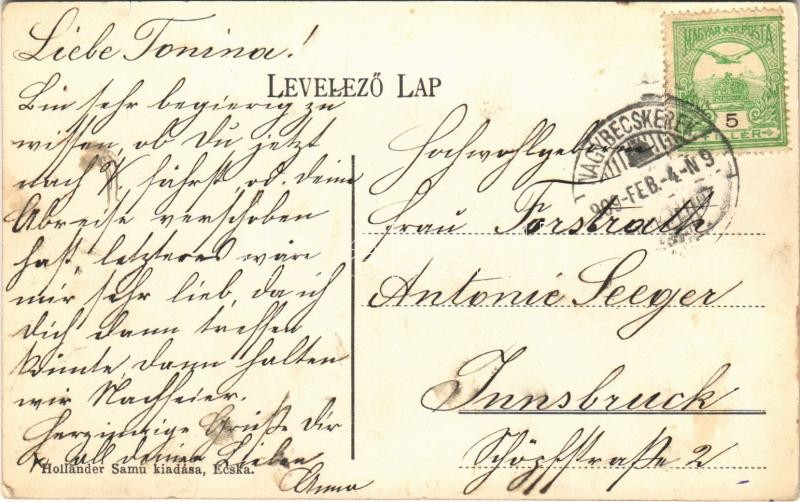 Liebe Tonina!
LEVELEZŐ LAP
Bin sehr begierig zu
wissen, ob Du jetzt
nach fährst, od. deine
Abreise verschoben
hast, letzteres wäre
mir sehr lieb, da ich
Dich dann treffen
könnte, dann halten
wir Nachfeier.
Herzinnige Grüße Dir
u. all deinen Lieben
Anna
Hollander Samu kiadása, Écska.
MAGYAR KIR. POSTA
5
FILLER
NAGYBECSKEREK
909-FEB.-4-N 9
Hochwohlgeboren
Frau Forstrath
Antonie Seeger
Innsbruck
Schöpfstraße 2